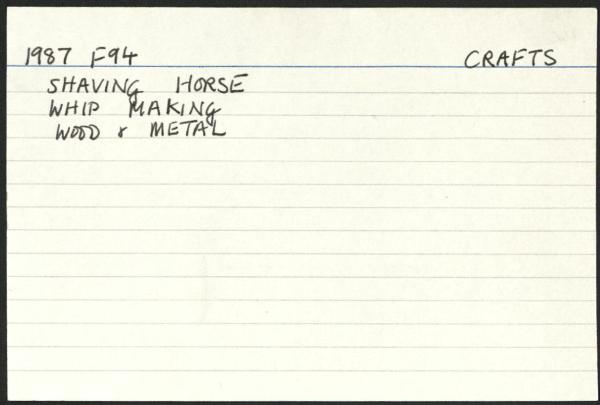 1987 F94 CRAFTS
SHAVING HORSE
WHIP MAKING
WOOD & METAL